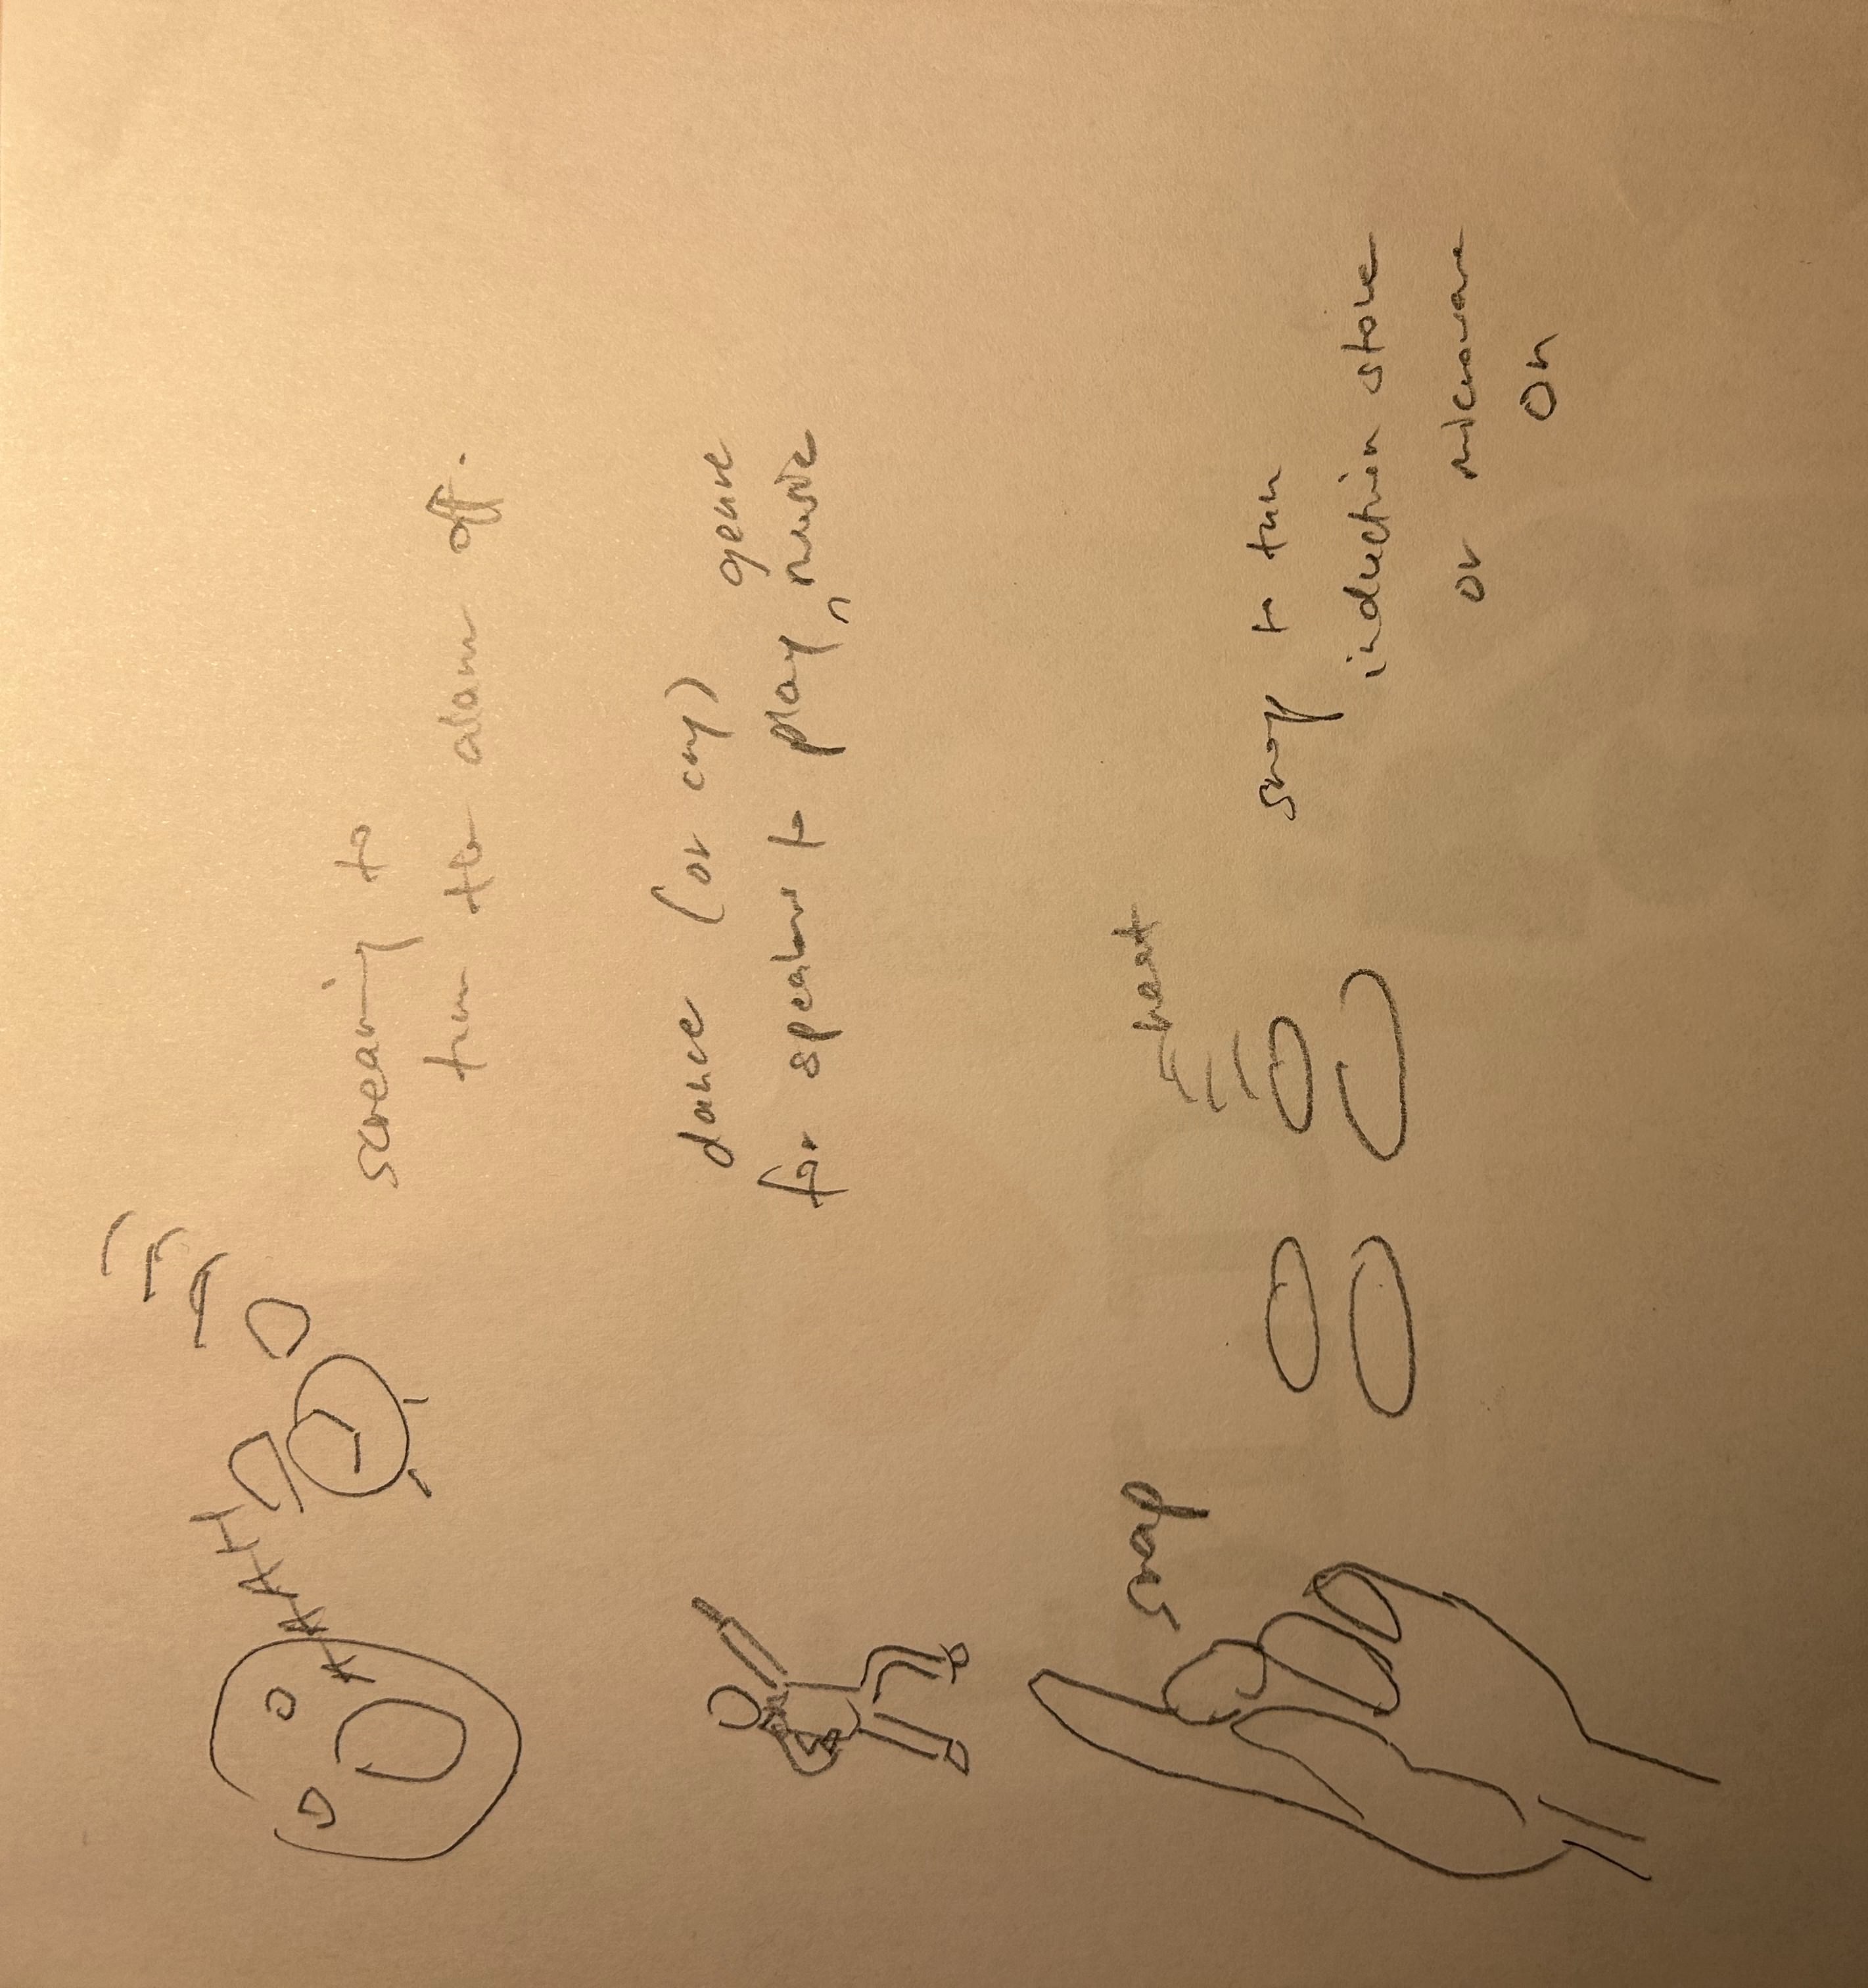 AAAAH
screaming to
turn the alarm off.
dance (or cry)
genre
for speakers to play music
snap
heat
snap to turn
induction stove
or microwave
on